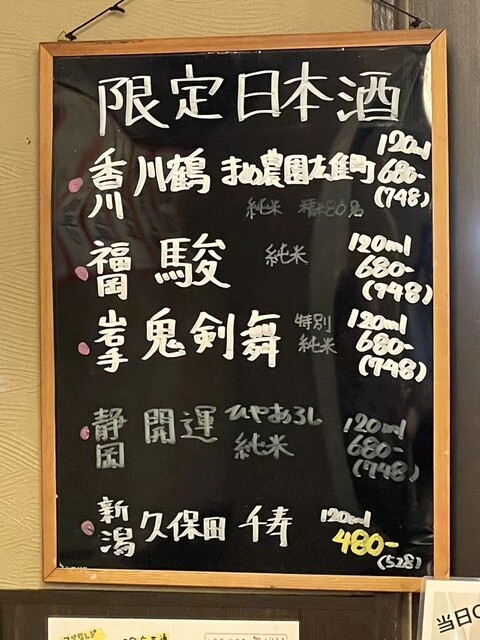 限定日本酒
香川 川鶴 まめ農園左雄町 120ml 680- (748)
純米 精米80%
福岡 駿 純米 120ml 680- (748)
岩手 鬼剣舞 特別純米 120ml 680- (748)
静岡 開運 ひやおろし 純米 120ml 680- (748)
新潟 久保田 千寿 120ml 480- (528)
当日